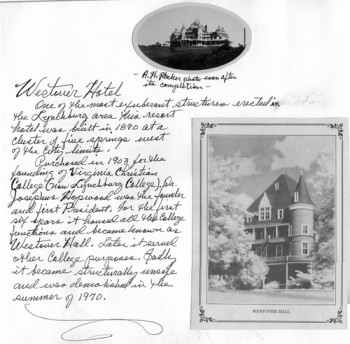 - A.H. Plecker photo soon after
its completion -
Westover Hotel
One of the most exuberant structures erected in
the Lynchburg area this resort
hotel was built in 1890 at a
cluster of five springs west
of the City limits.
Purchased in 1903 for the
founding of Virginia Christian
College (now Lynchburg College), Dr.
Josephus Hopwood was the founder
and first President. For the first
six years it housed all the College
functions and became known as
Westover Hall. Later it served
other College purposes.
it became structurally unsafe
and was demolished in the
summer of 1970.
WESTOVER HALL